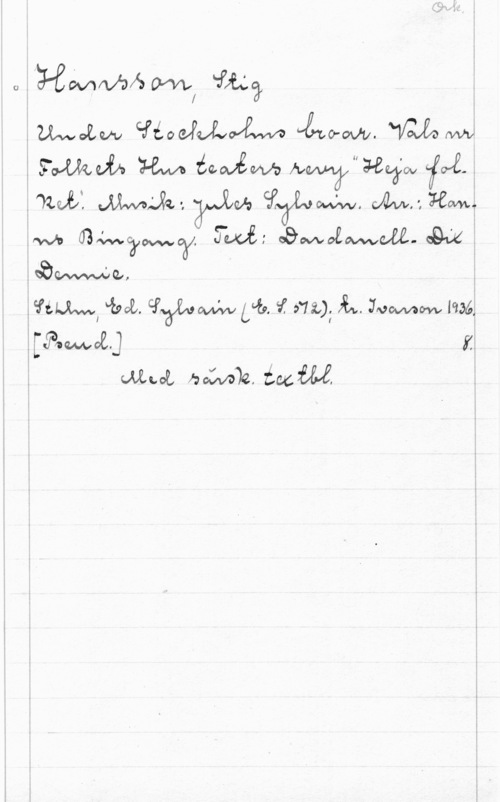 Ork.
Hansson, Stig
Under Stockholms broar. Vals ur
Folkets Hus teaters revy "Heja fol-
ket". Musik: Jules Sylvain. Arr.: Han-
ns Bingang. Text: Dardanell. Dix
Dennie.
Sthlm, Ed. Sylvain (E. S. 572); tr. Ivarson 1936.
[Pseud.] 8.
Med särsk. textbl.